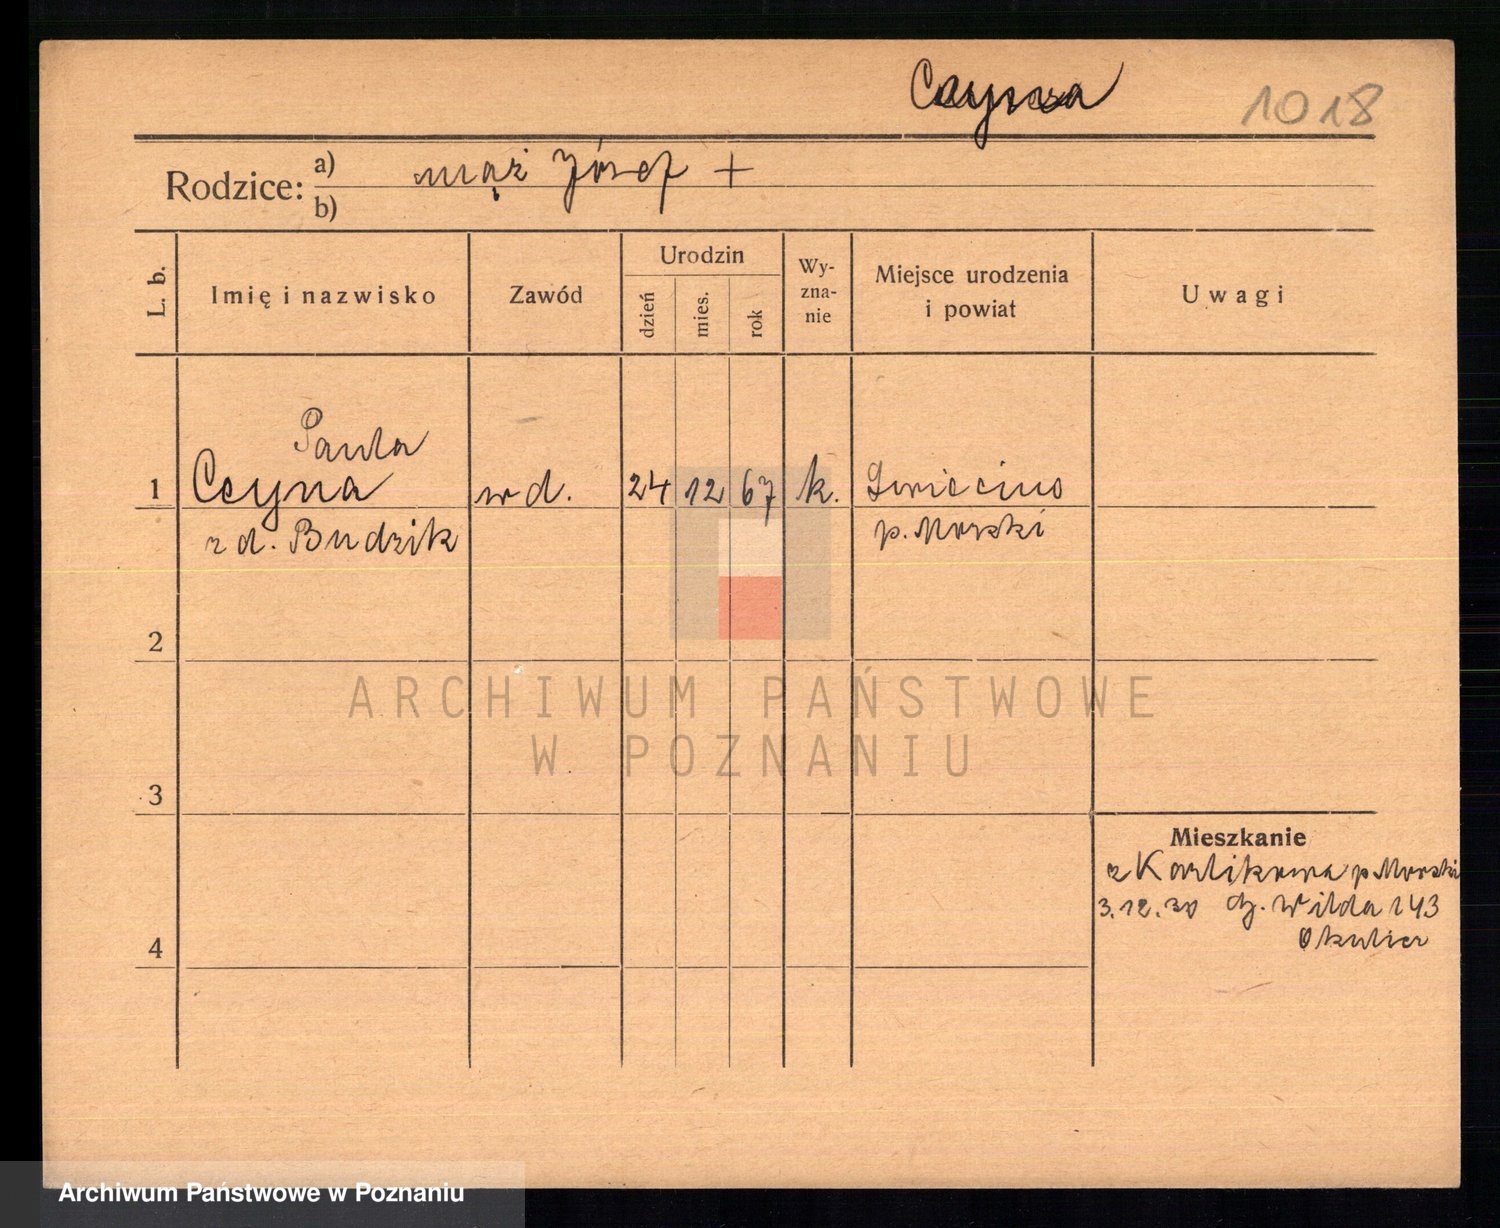 Ceyna
1018
Rodzice:
a) mąż Józef +
b)
L. b.
Imię i nazwisko
Zawód
Urodzin
dzień
mies.
rok
Wy-
zna-
nie
Miejsce urodzenia
i powiat
Uwagi
Paula
1 Ceyna wd. 24 12 67 k.
z d. Budzik p. Morski
2
ARCHIWUM PAŃSTWOWE
W POZNANIU
3
Mieszkanie
z Karlikowa p. Morski
3.12.30 Wilda 143
4
Archiwum Państwowe w Poznaniu